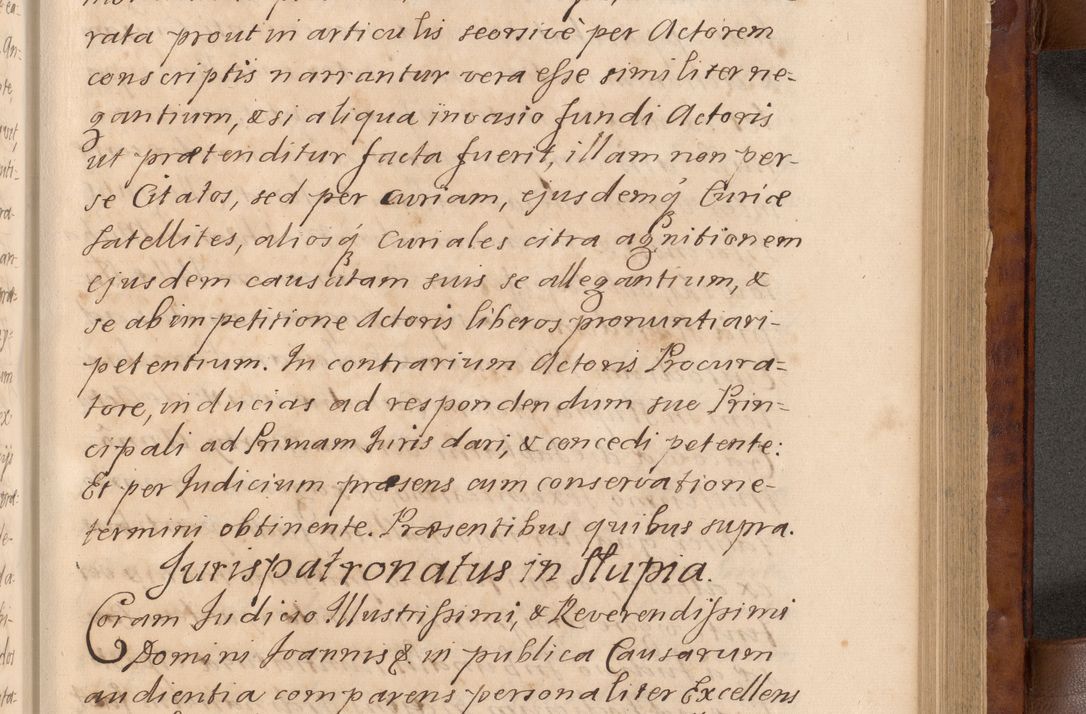 rata prout in articulis seorsivè per Actorem
conscriptis narrantur vera esse similiter ne=
gantium, & si aliqua invasio fundi Actoris
ut prætenditur facta fuerit, illam non per-
se Citatos, sed per Curiam, ejusdemq́ Curiæ
Satellites, aliosq́ Curiales citra agnitionem
ejusdem causæ tam suis se allegantium, &
se ab impetitione Actoris liberos pronuntiari-
petentium. In contrarium Actoris Procura=
tore, inducias ad respondendum suo Prin=
cipali ad Primam Juris dari, & concedi petente:
Et per Judicium præsens cum conservatione-
termini obtinente. Præsentibus quibus supra.
Jurispatronatus in Stupia.
Coram Judicio Illustrissimi, & Reverendissimi
Domini Joannis & in publica Causarum
audientia comparens personaliter Excellens